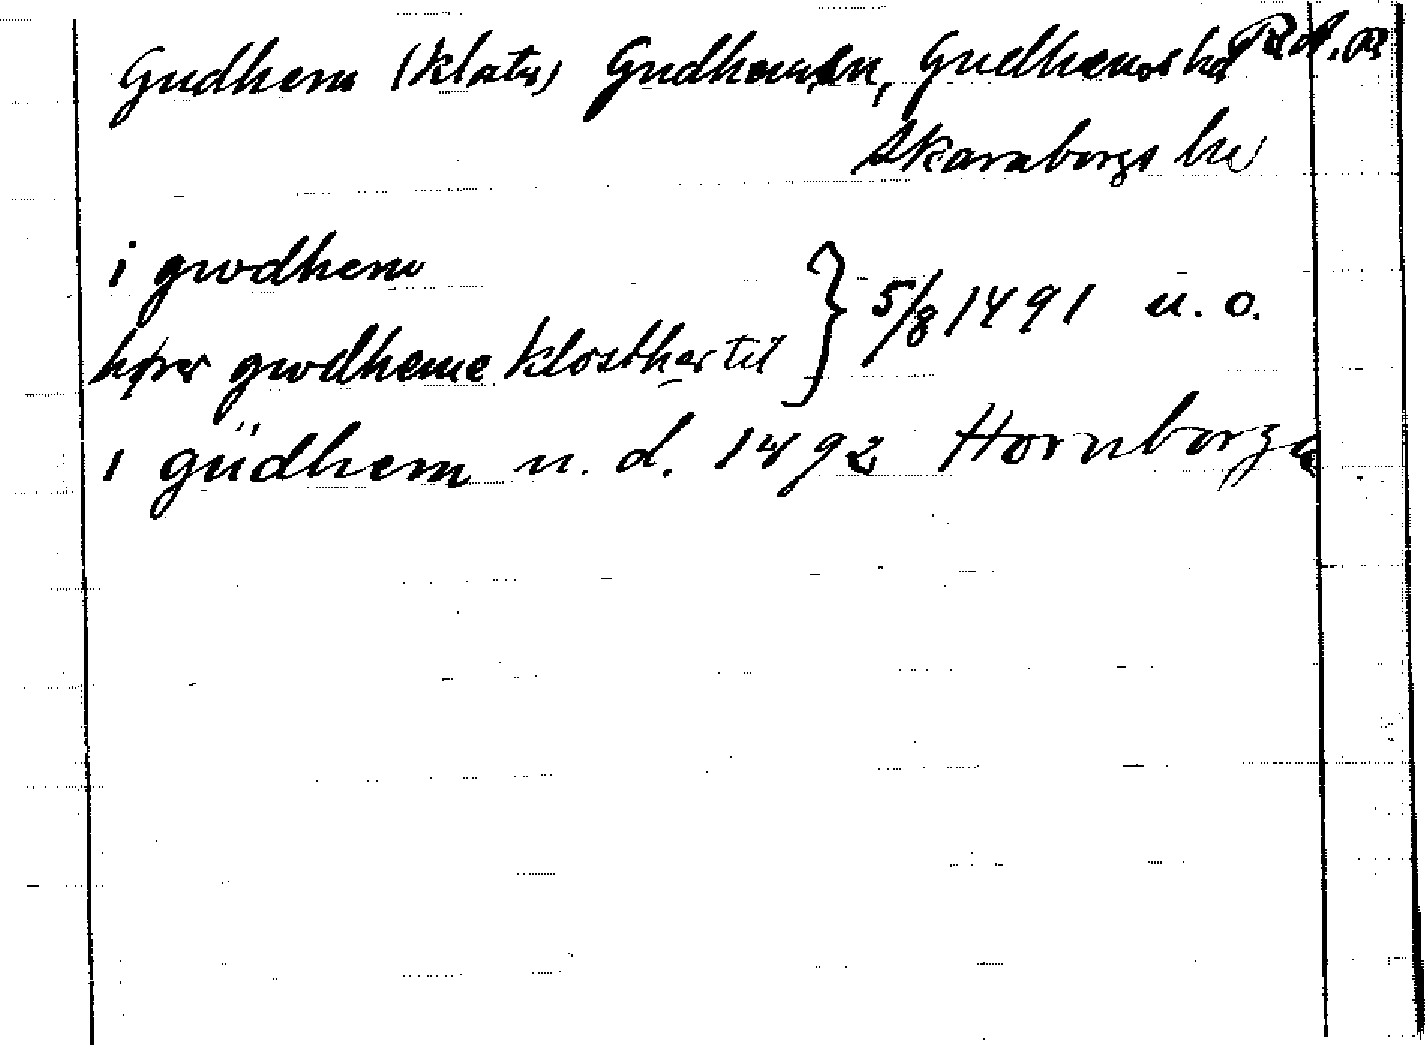 Gudhem (klster) Gudhems sn, Gudhems hd RA. P
Skaraborgs län
i gwdhem
gwdheme klosthar til } 5/8 1491 u. o.
i güdhem u. d. 1492 Hornborga